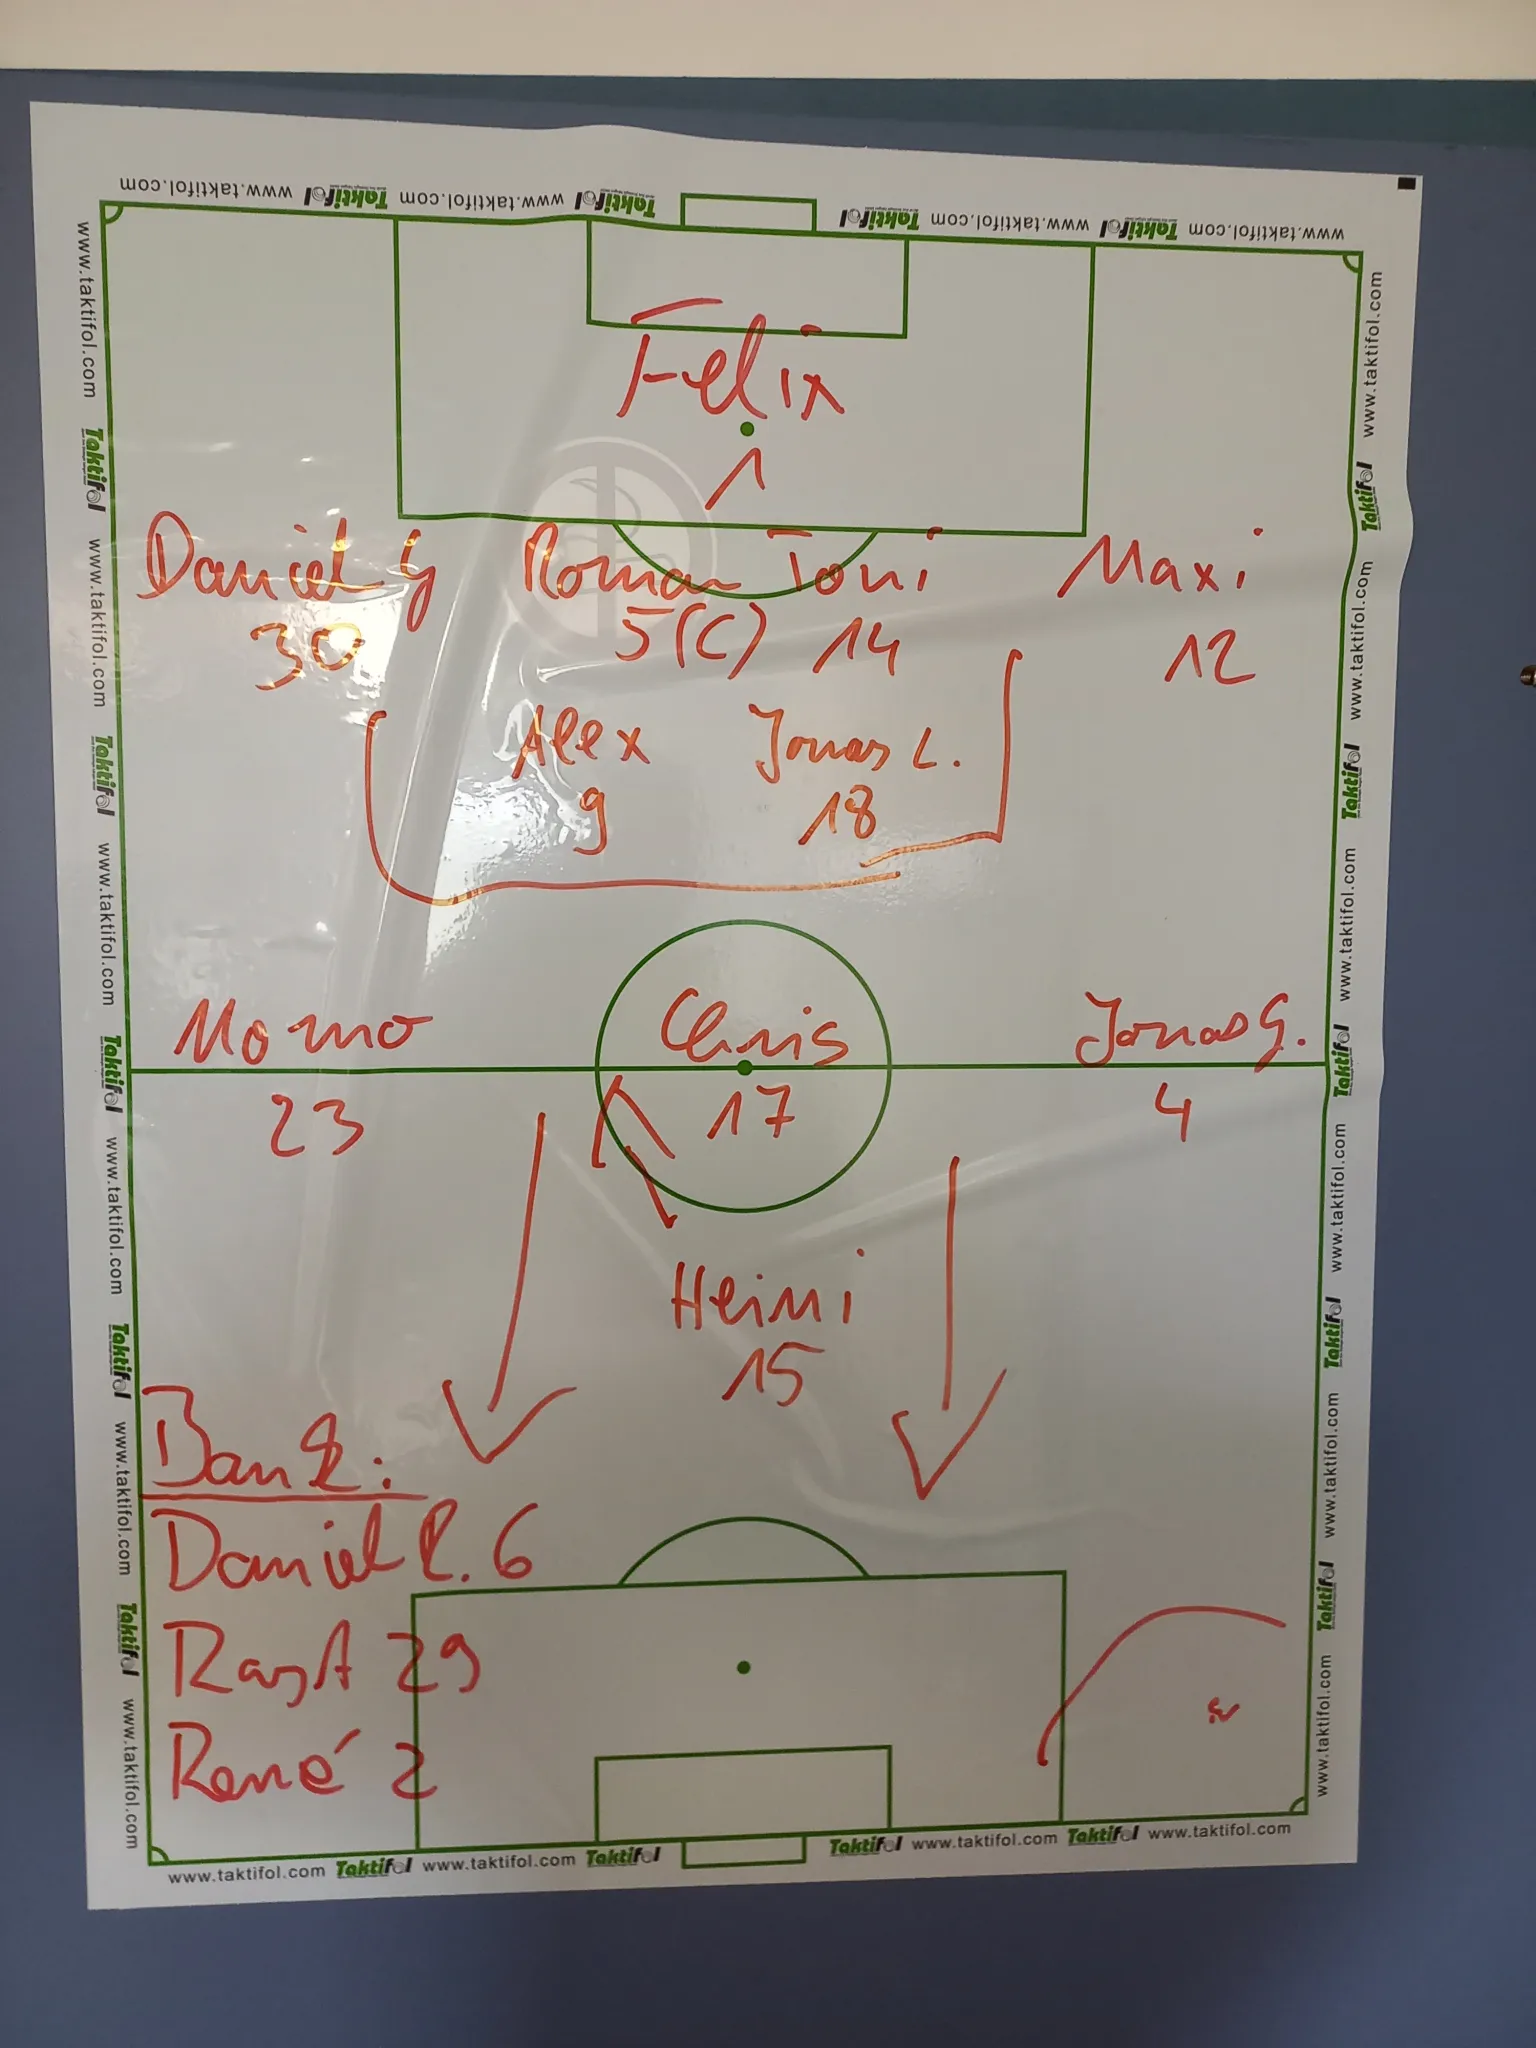 www.taktifol.com Taktifol www.taktifol.com Taktifol www.taktifol.com Taktifol www.taktifol.com Taktifol www.taktifol.com
Felix
1
Daniel G Roman Toni Maxi
30 5(C) 14 12
Alex Jonas L.
9 18
Momo Chris Jonas G.
23 17 4
Heimi
15
Bank:
Daniel R. 6
Rast 29
René 2
www.taktifol.com Taktifol www.taktifol.com Taktifol www.taktifol.com Taktifol www.taktifol.com Taktifol www.taktifol.com Taktifol www.taktifol.com Taktifol www.taktifol.com
www.taktifol.com Taktifol www.taktifol.com Taktifol www.taktifol.com Taktifol www.taktifol.com Taktifol www.taktifol.com Taktifol www.taktifol.com
www.taktifol.com Taktifol www.taktifol.com Taktifol Taktifol www.taktifol.com Taktifol www.taktifol.com